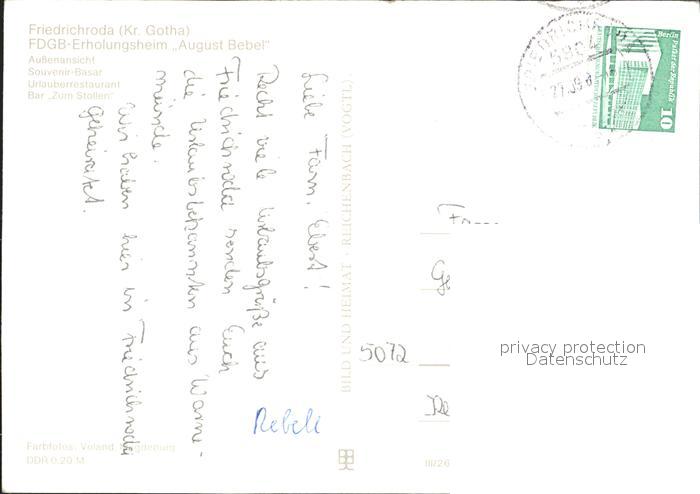 Friedrichroda (Kr. Gotha)
FDGB-Erholungsheim „August Bebel"
Außenansicht
Souvenir-Basar
Urlauberrestaurant
Bar „Zum Stollen"
Liebe Fam. Ebert!
Recht viele Urlaubsgrüße aus
Friedrichroda senden Euch
die Urlaubsbekannten aus Warne-
münde.
Wir haben hier in Friedrichroda
geheiratet.
BILD UND HEIMAT · REICHENBACH (VOGTL)
Berlin Palast der Republik
10
Fa
Ge
5072
privacy protection
Datenschutz
Farbfotos: Voland, Magdeburg
DDR 0,20 M
III/26